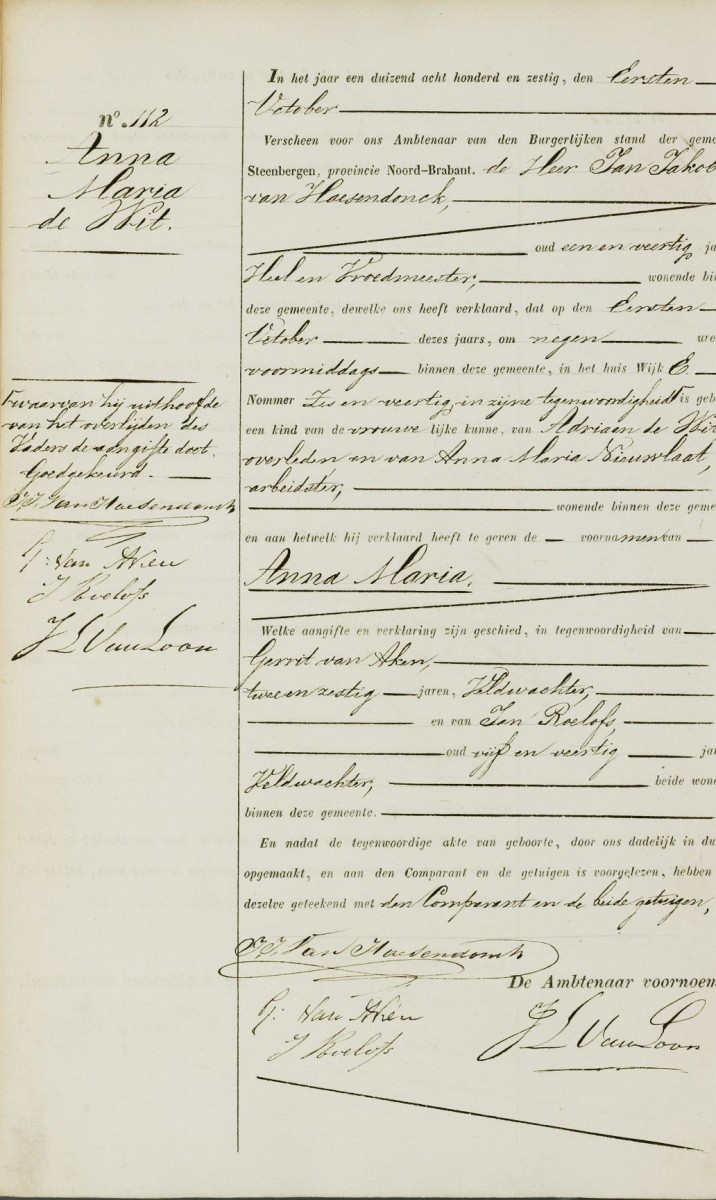 nº. 112
Anna
Maria
de Wit.
Fwaarvan hij uithoofde
van het overlijden des
Vaders de aangifte doet.
Goedgekeurd.
J.J. Van Haesendonck
G: Van Aken
J Roelofs
J L Van Loon
In het jaar een duizend acht honderd en zestig, den Eersten
October
Verscheen voor ons Ambtenaar van den Burgerlijken stand der geme
Steenbergen, provincie Noord-Brabant. de Heer Jan Jakob
van Haesendonck,
oud een en veertig ja
Heel en Vroedmeester, wonende bin
deze gemeente, dewelke ons heeft verklaard, dat op den Eersten
October dezes jaars, om negen ure
voormiddags binnen deze gemeente, in het huis Wijk E
Nommer Zes en veertig, in zijne tegenwoordigheid F is geb
een kind van de vrouwe lijke kunne, van Adriaan de Wit
overleden en van Anna Maria Nieuwlaat,
arbeidster,
wonende binnen deze geme
en aan hetwelk hij verklaard heeft te geven de voornamen van
Anna Maria.
Welke aangifte en verklaring zijn geschied, in tegenwoordigheid van
Gerrit van Aken,
twee en zestig jaren, Veldwachter,
en van Jan Roelofs,
oud vijf en veertig ja
Veldwachter, beide wone
binnen deze gemeente.
En nadat de tegenwoordige akte van geboorte, door ons dadelijk in du
opgemaakt, en aan den Comparant en de getuigen is voorgelezen, hebben
dezelve geteekend met den Comparant en de beide getuigen,
J.J. Van Haesendonck
De Ambtenaar voornoem
G: Van Aken
J Roelofs
J L Van Loon